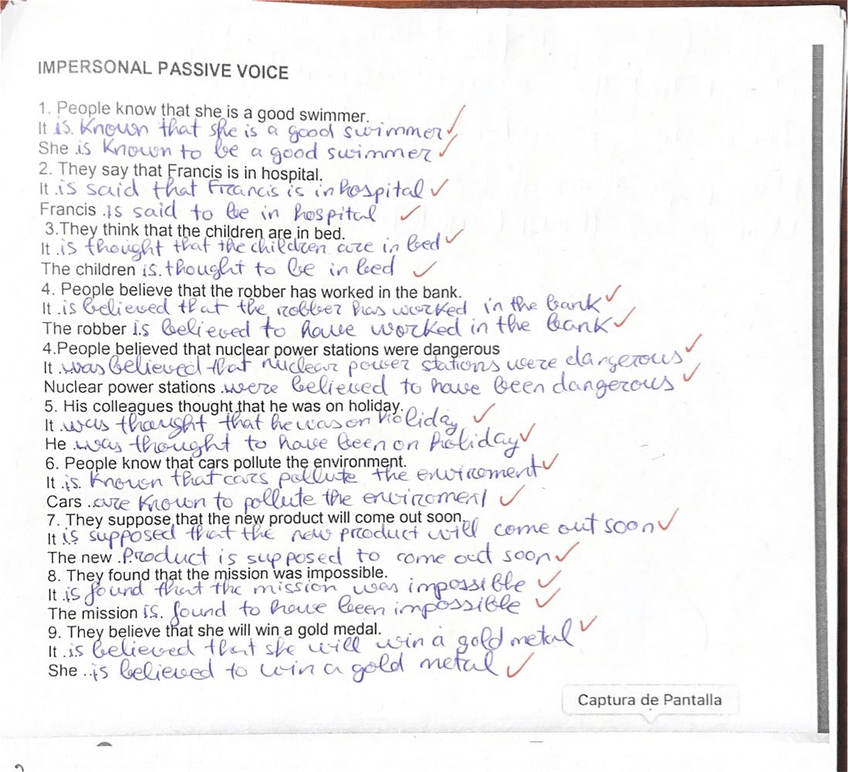 IMPERSONAL PASSIVE VOICE
1. People know that she is a good swimmer.
It is. Known that she is a good swimmer
She is Known to be a good swimmer
2. They say that Francis is in hospital.
It is said that Francis is in hospital
Francis .is said to be in hospital
3.They think that the children are in bed.
It .is thought that the children are in bed
The children is. thought to be in bed
4. People believe that the robber has worked in the bank.
It .is believed that the robber has worked in the bank
The robber is believed to have worked in the bank
4.People believed that nuclear power stations were dangerous
It .was believed that nuclear power stations were dangerous
Nuclear power stations .were believed to have been dangerous
5. His colleagues thought that he was on holiday.
It .was thought that he was on holiday
He .was thought to have been on holiday
6. People know that cars pollute the environment.
It is. Known that cars pollute the enviroment
Cars .are Known to pollute the enviroment
7. They suppose that the new product will come out soon.
It is supposed that the new product will come out soon
The new .Product is supposed to come out soon
8. They found that the mission was impossible.
It is found that the mission was impossible
The mission is. found to have been impossible
9. They believe that she will win a gold medal.
It .is believed that she will win a gold metal
She ..is believed to win a gold metal
Captura de Pantalla